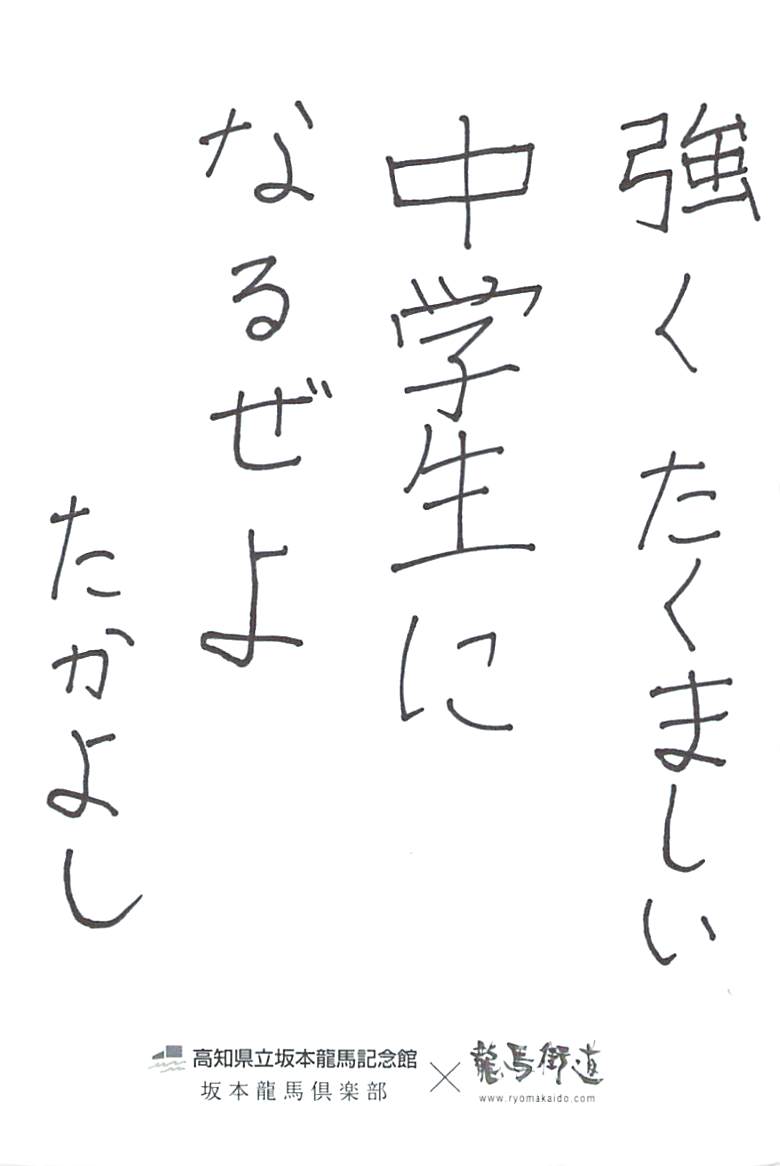 強くたくましい
中学生に
なるぜよ
たかよし
高知県立坂本龍馬記念館
坂本龍馬倶楽部
×
龍馬街道
www.ryomakaido.com